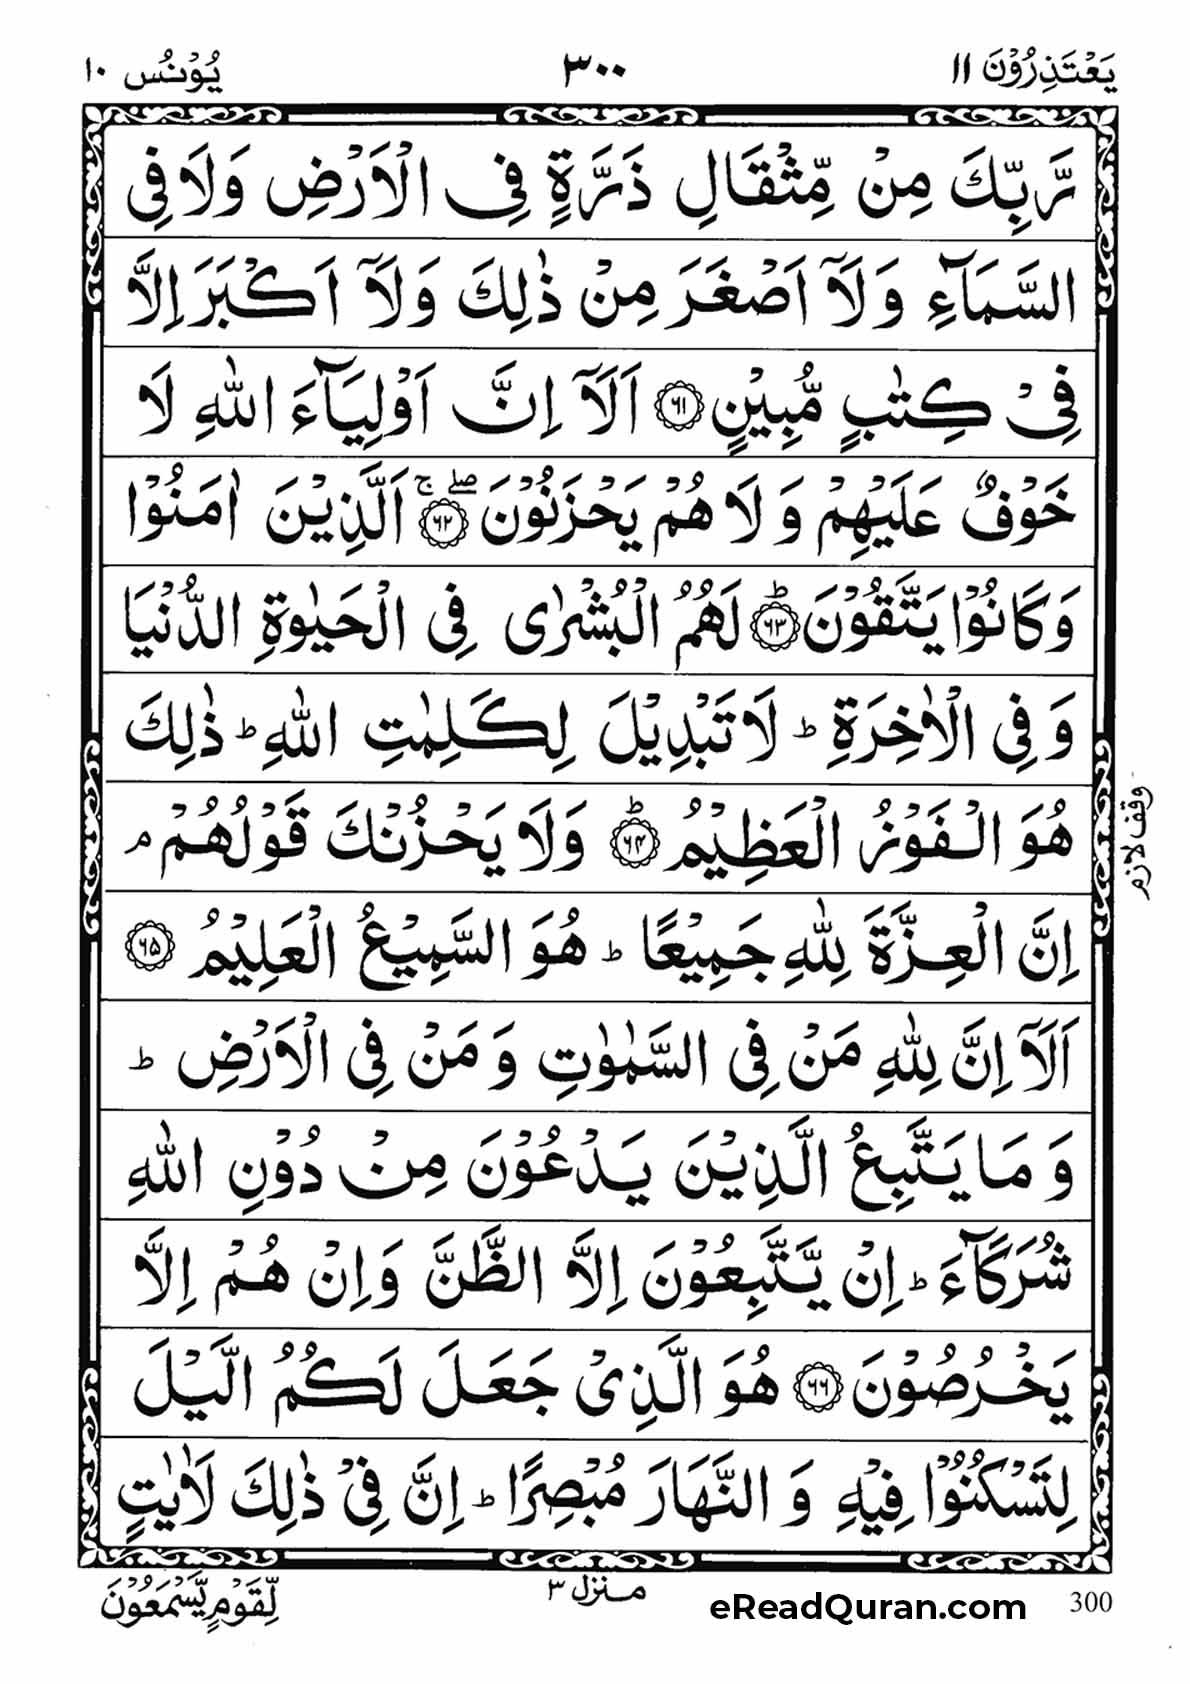 يَعْتَذِرُوْنَ ١١
٣٠٠
يُوْنُس ١٠
رَّبِّكَ مِنْ مِّثْقَالِ ذَرَّةٍ فِى الْاَرْضِ وَلَا فِى
السَّمَآءِ وَلَاۤ اَصْغَرَ مِنْ ذٰلِكَ وَلَاۤ اَكْبَرَ اِلَّا
فِىْ كِتٰبٍ مُّبِيْنٍ ﴿٦١﴾ اَلَاۤ اِنَّ اَوْلِيَآءَ اللّٰهِ لَا
خَوْفٌ عَلَيْهِمْ وَلَا هُمْ يَحْزَنُوْنَ ﴿٦٢﴾ۖۚ اَلَّذِيْنَ اٰمَنُوْا
وَكَانُوْا يَتَّقُوْنَ ﴿٦٣﴾ؕ لَهُمُ الْبُشْرٰى فِى الْحَيٰوةِ الدُّنْيَا
وَفِى الْاٰخِرَةِ ؕ لَا تَبْدِيْلَ لِكَلِمٰتِ اللّٰهِ ؕ ذٰلِكَ
هُوَ الْفَوْزُ الْعَظِيْمُ ﴿٦٤﴾ؕ وَلَا يَحْزُنْكَ قَوْلُهُمْ ۘ
وقف لازم
اِنَّ الْعِزَّةَ لِلّٰهِ جَمِيْعًا ؕ هُوَ السَّمِيْعُ الْعَلِيْمُ ﴿٦٥﴾
اَلَاۤ اِنَّ لِلّٰهِ مَنْ فِى السَّمٰوٰتِ وَمَنْ فِى الْاَرْضِ ؕ
وَمَا يَتَّبِعُ الَّذِيْنَ يَدْعُوْنَ مِنْ دُوْنِ اللّٰهِ
شُرَكَآءَ ؕ اِنْ يَّتَّبِعُوْنَ اِلَّا الظَّنَّ وَاِنْ هُمْ اِلَّا
يَخْرُصُوْنَ ﴿٦٦﴾ هُوَ الَّذِىْ جَعَلَ لَكُمُ الَّيْلَ
لِتَسْكُنُوْا فِيْهِ وَالنَّهَارَ مُبْصِرًا ؕ اِنَّ فِىْ ذٰلِكَ لَاٰيٰتٍ
لِّقَوْمٍ يَّسْمَعُوْنَ
منزل ٣
eReadQuran.com
300